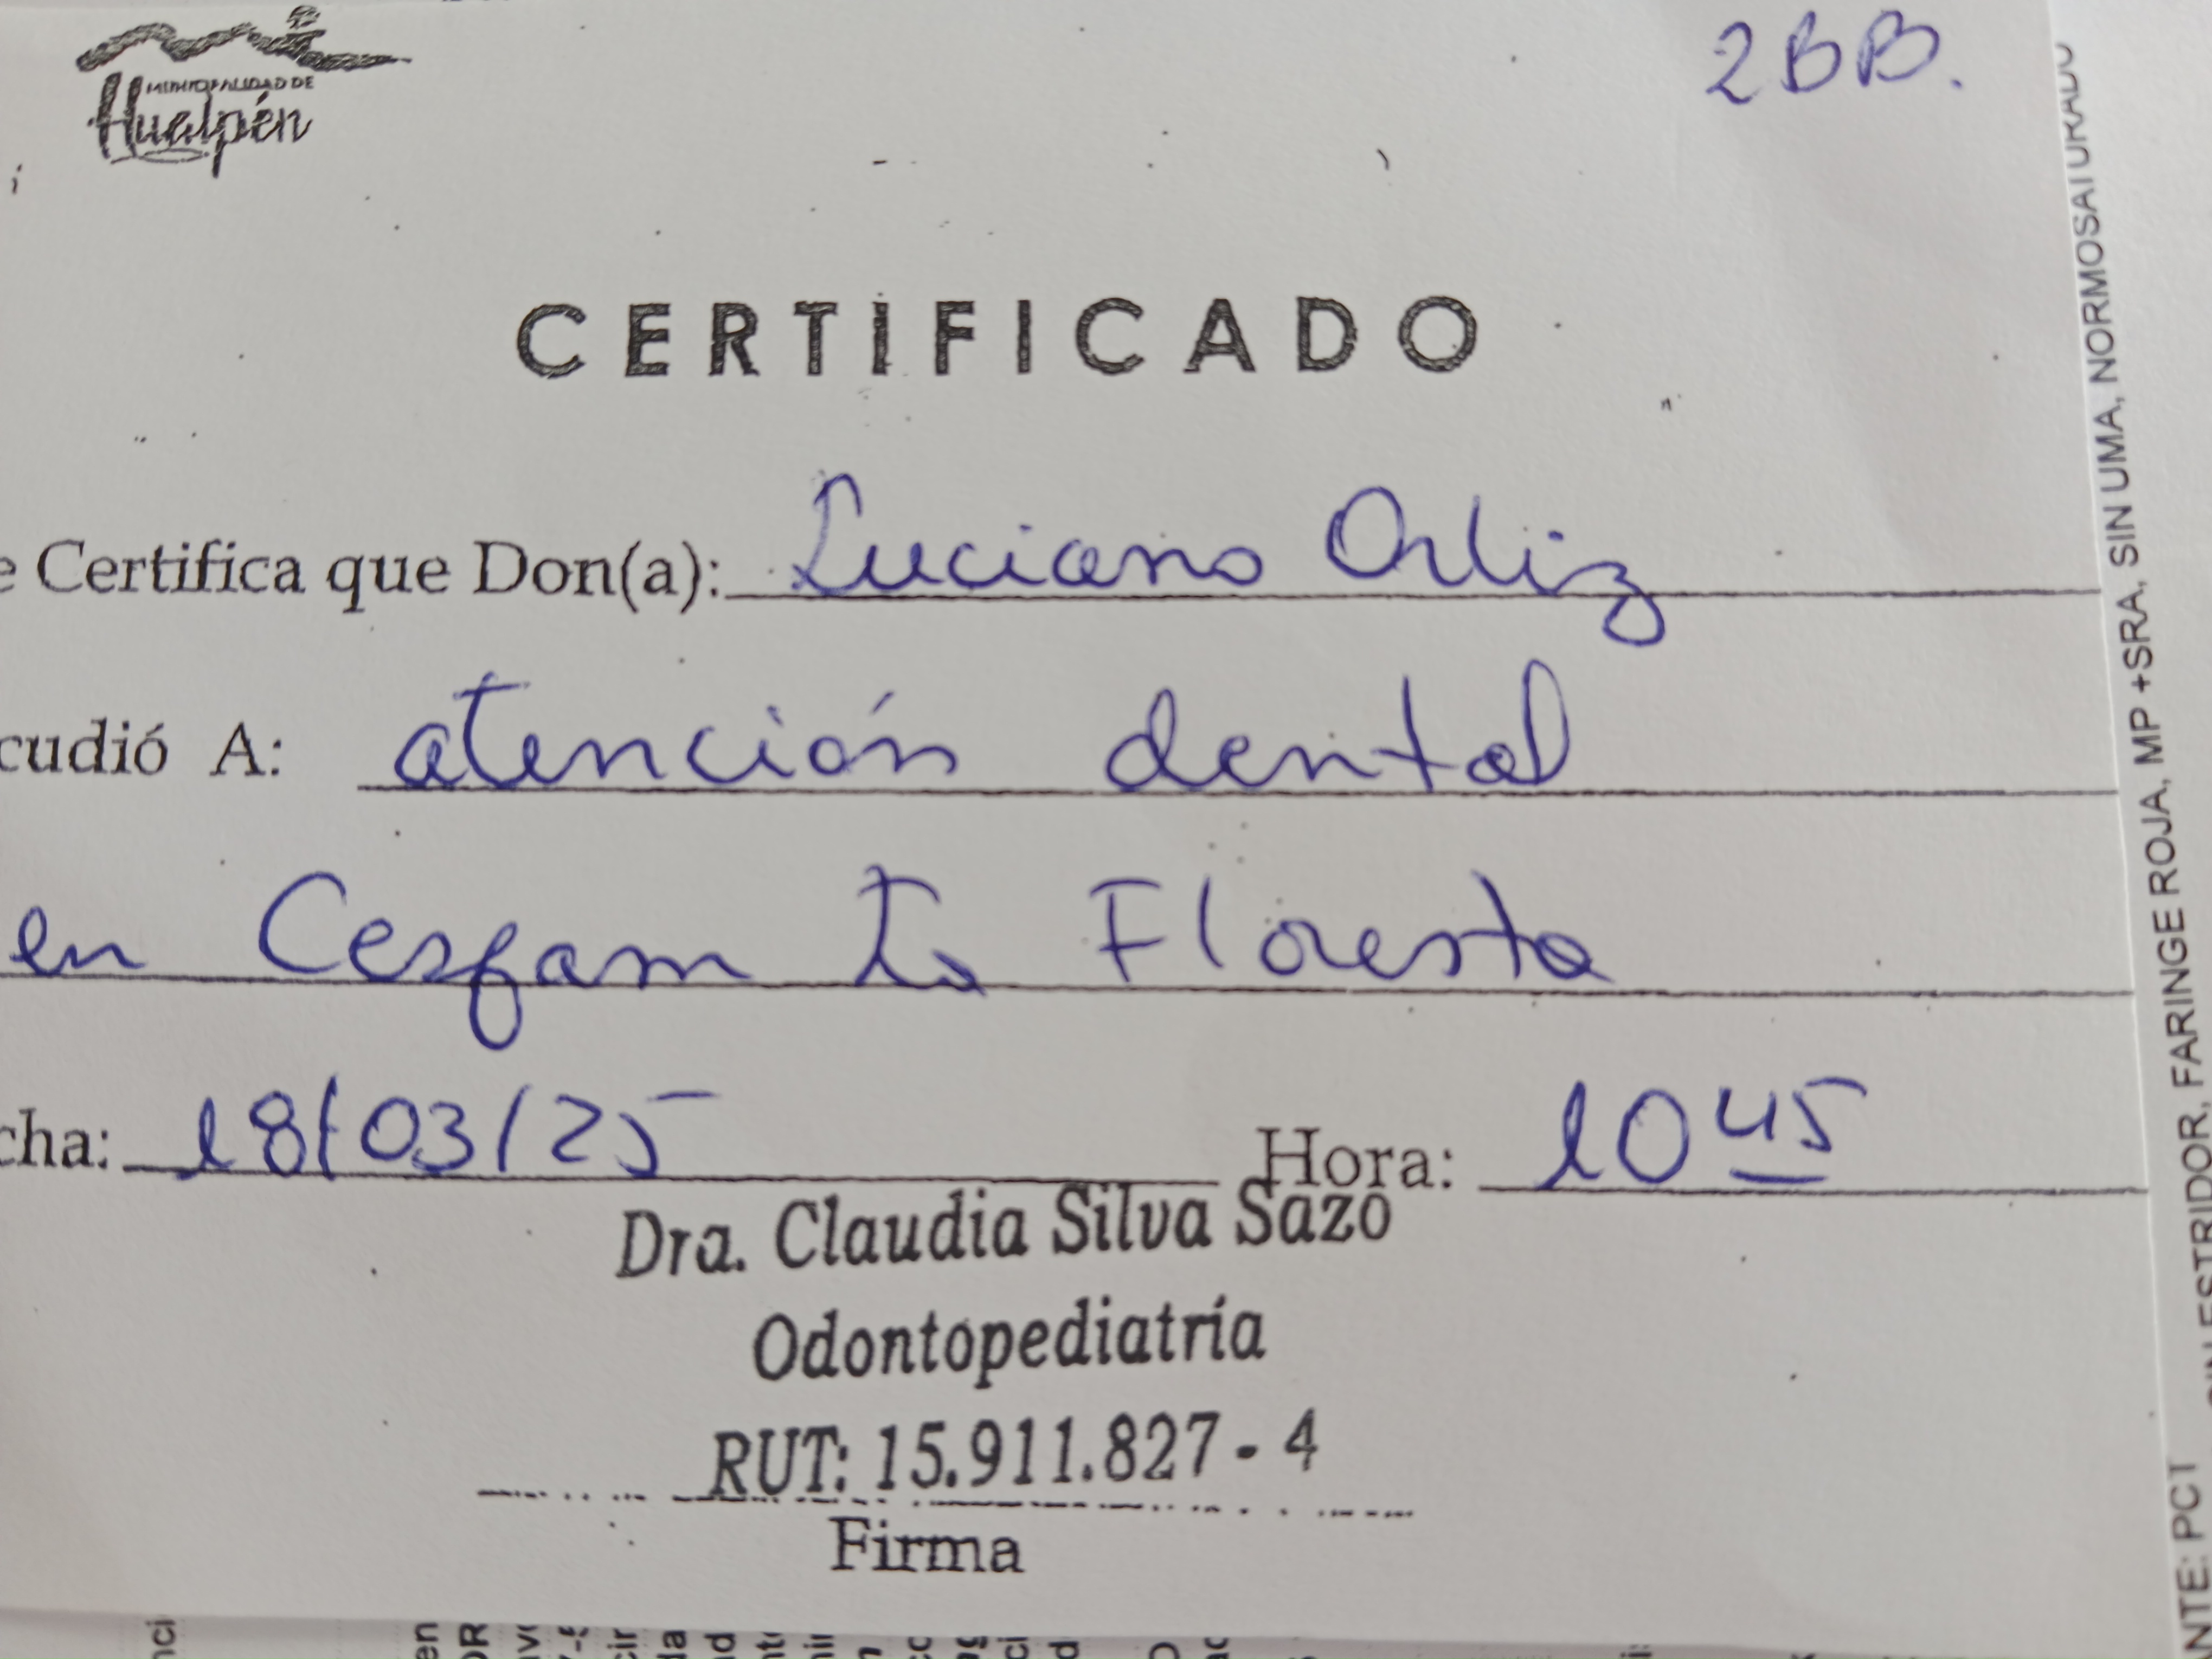 MUNICIPALIDAD DE
Hualpén
2BB.
CERTIFICADO
e Certifica que Don(a): Luciano Ortiz
cudió A: atención dental
en Cesfam La Floresta
cha: 18/03/25 Hora: 10 45
Dra. Claudia Silva Sazo
Odontopediatría
RUT: 15.911.827-4
Firma
SIN ESTRIDOR, FARINGE ROJA, MP +SRA, SIN UMA, NORMOSATURADO
NTE: PCT